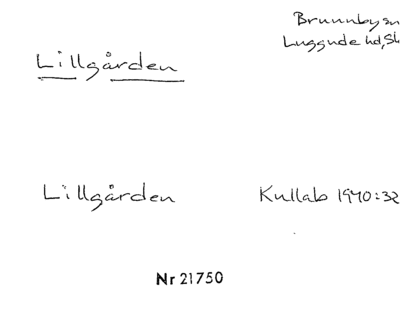 Brunnby sn
Luggude hd, Sk
Lillgården
Lillgården Kullab 1940:32
Nr 21750